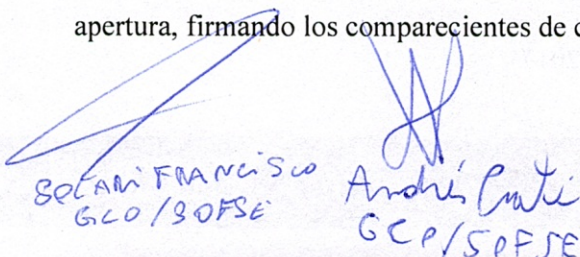 apertura, firmando los comparecientes de c
SOLARI FRANCISCO
GCO/SOFSE
Andrés
GCO/SOFSE